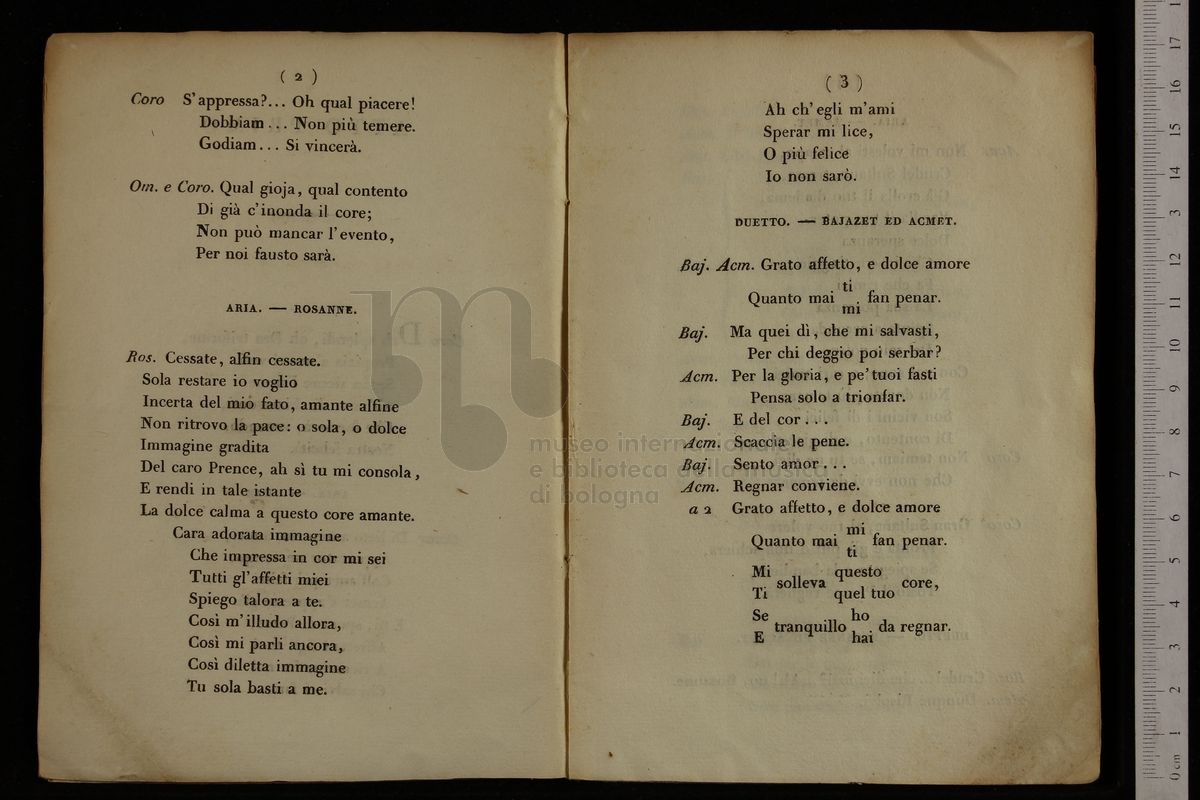 ( 2 )
Coro S'appressa?... Oh qual piacere!
Dobbiam... Non più temere.
Godiam... Si vincerà.
Om. e Coro. Qual gioja, qual contento
Di già c'inonda il core;
Non può mancar l'evento,
Per noi fausto sarà.
ARIA. — ROSANNE.
Ros. Cessate, alfin cessate.
Sola restare io voglio
Incerta del mio fato, amante alfine
Non ritrovo la pace: o sola, o dolce
Immagine gradita
Del caro Prence, ah sì tu mi consola,
E rendi in tale istante
La dolce calma a questo core amante.
Cara adorata immagine
Che impressa in cor mi sei
Tutti gl'affetti miei
Spiego talora a te.
Così m'illudo allora,
Così mi parli ancora,
Così diletta immagine
Tu sola basti a me.
( 3 )
Ah ch'egli m'ami
Sperar mi lice,
O più felice
Io non sarò.
DUETTO. — BAJAZET ED ACMET.
Baj. Acm. Grato affetto, e dolce amore
ti
Quanto mai fan penar.
mi
Baj. Ma quei dì, che mi salvasti,
Per chi deggio poi serbar?
Acm. Per la gloria, e pe'tuoi fasti
Pensa solo a trionfar.
Baj. E del cor...
Acm. Scaccia le pene.
Baj. Sento amor...
Acm. Regnar conviene.
a 2 Grato affetto, e dolce amore
mi
Quanto mai fan penar.
ti
Mi questo
solleva core,
Ti quel tuo
Se ho
tranquillo da regnar.
E hai
museo internazionale
e biblioteca della musica
di bologna
0 cm 1 2 3 4 5 6 7 8 9 10 11 12 13 14 15 16 17